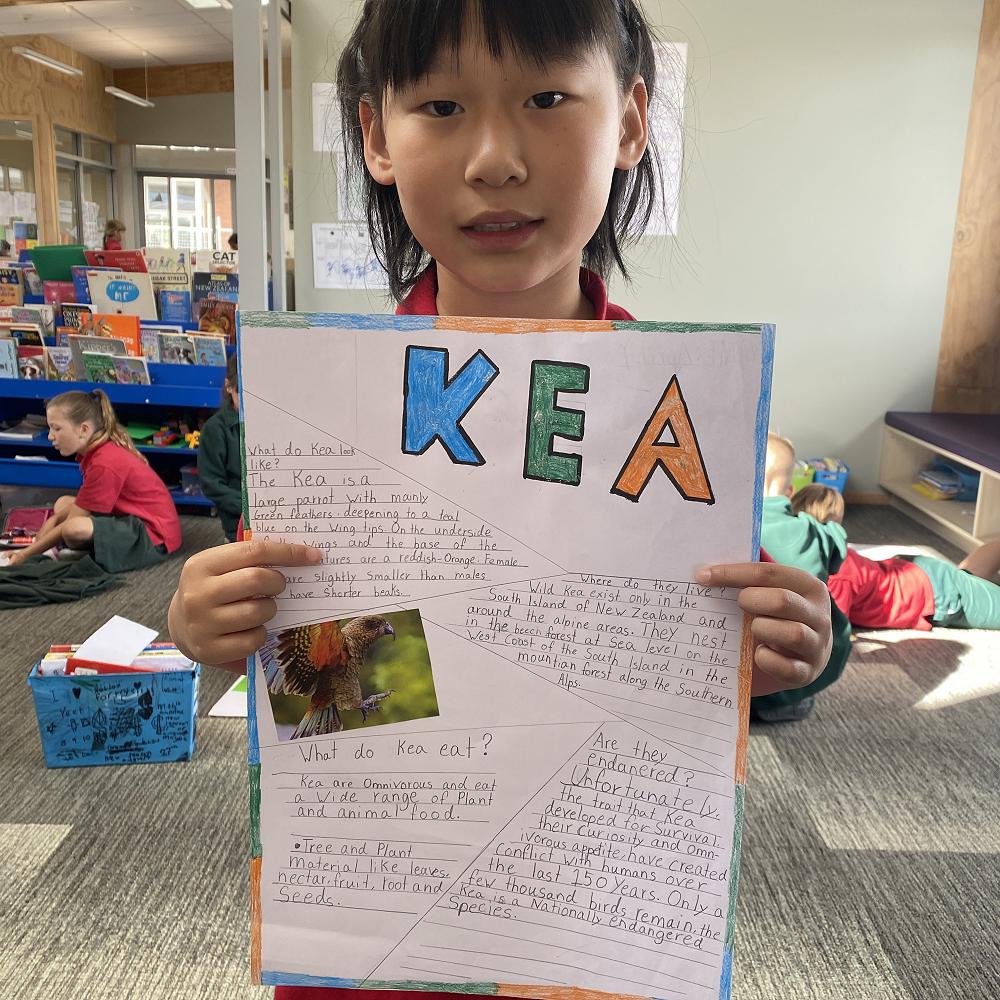 KEA
What do Kea look
like?
The Kea is a
large parrot with mainly
Green feathers. deepening to a teal
blue on the wing tips. On the underside
wings and the base of the
are a reddish-Orange. Female
are slightly smaller than males
have shorter beaks.
Where do they live?
Wild Kea exist only in the
South Island of New Zealand and
around the alpine areas. They nest
in the beech forest at Sea level on the
West Coast of the South Island in the
mountian forest along the Southern
Alps.
What do Kea eat?
Kea are Omnivorous and eat
a wide range of Plant
and animal food.
•Tree and Plant
material like leaves,
nectar, fruit, root and
Seeds.
Are they
endanered?
Unfortunately,
the trait that Kea
developed for Survival,
their Curiosity and omn-
ivorous appetite, have created
Conflict with humans over
the last 150 Years. Only a
few thousand birds remain, the
Kea is a Nationally endangered
Species.
CAT